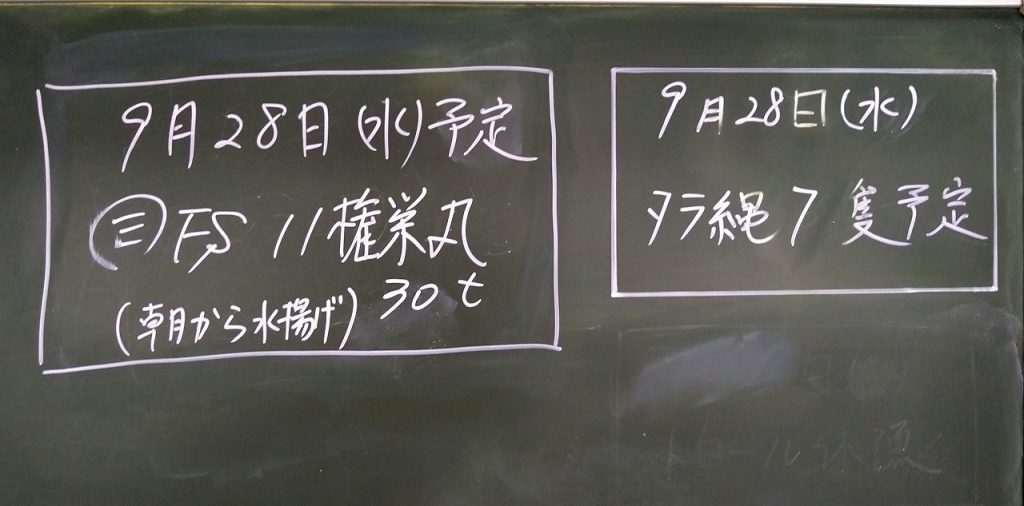 9月28日(水)予定
㊂FS 11権栄丸
(朝から水揚げ) 30t
9月28日(水)
タラ縄7隻予定